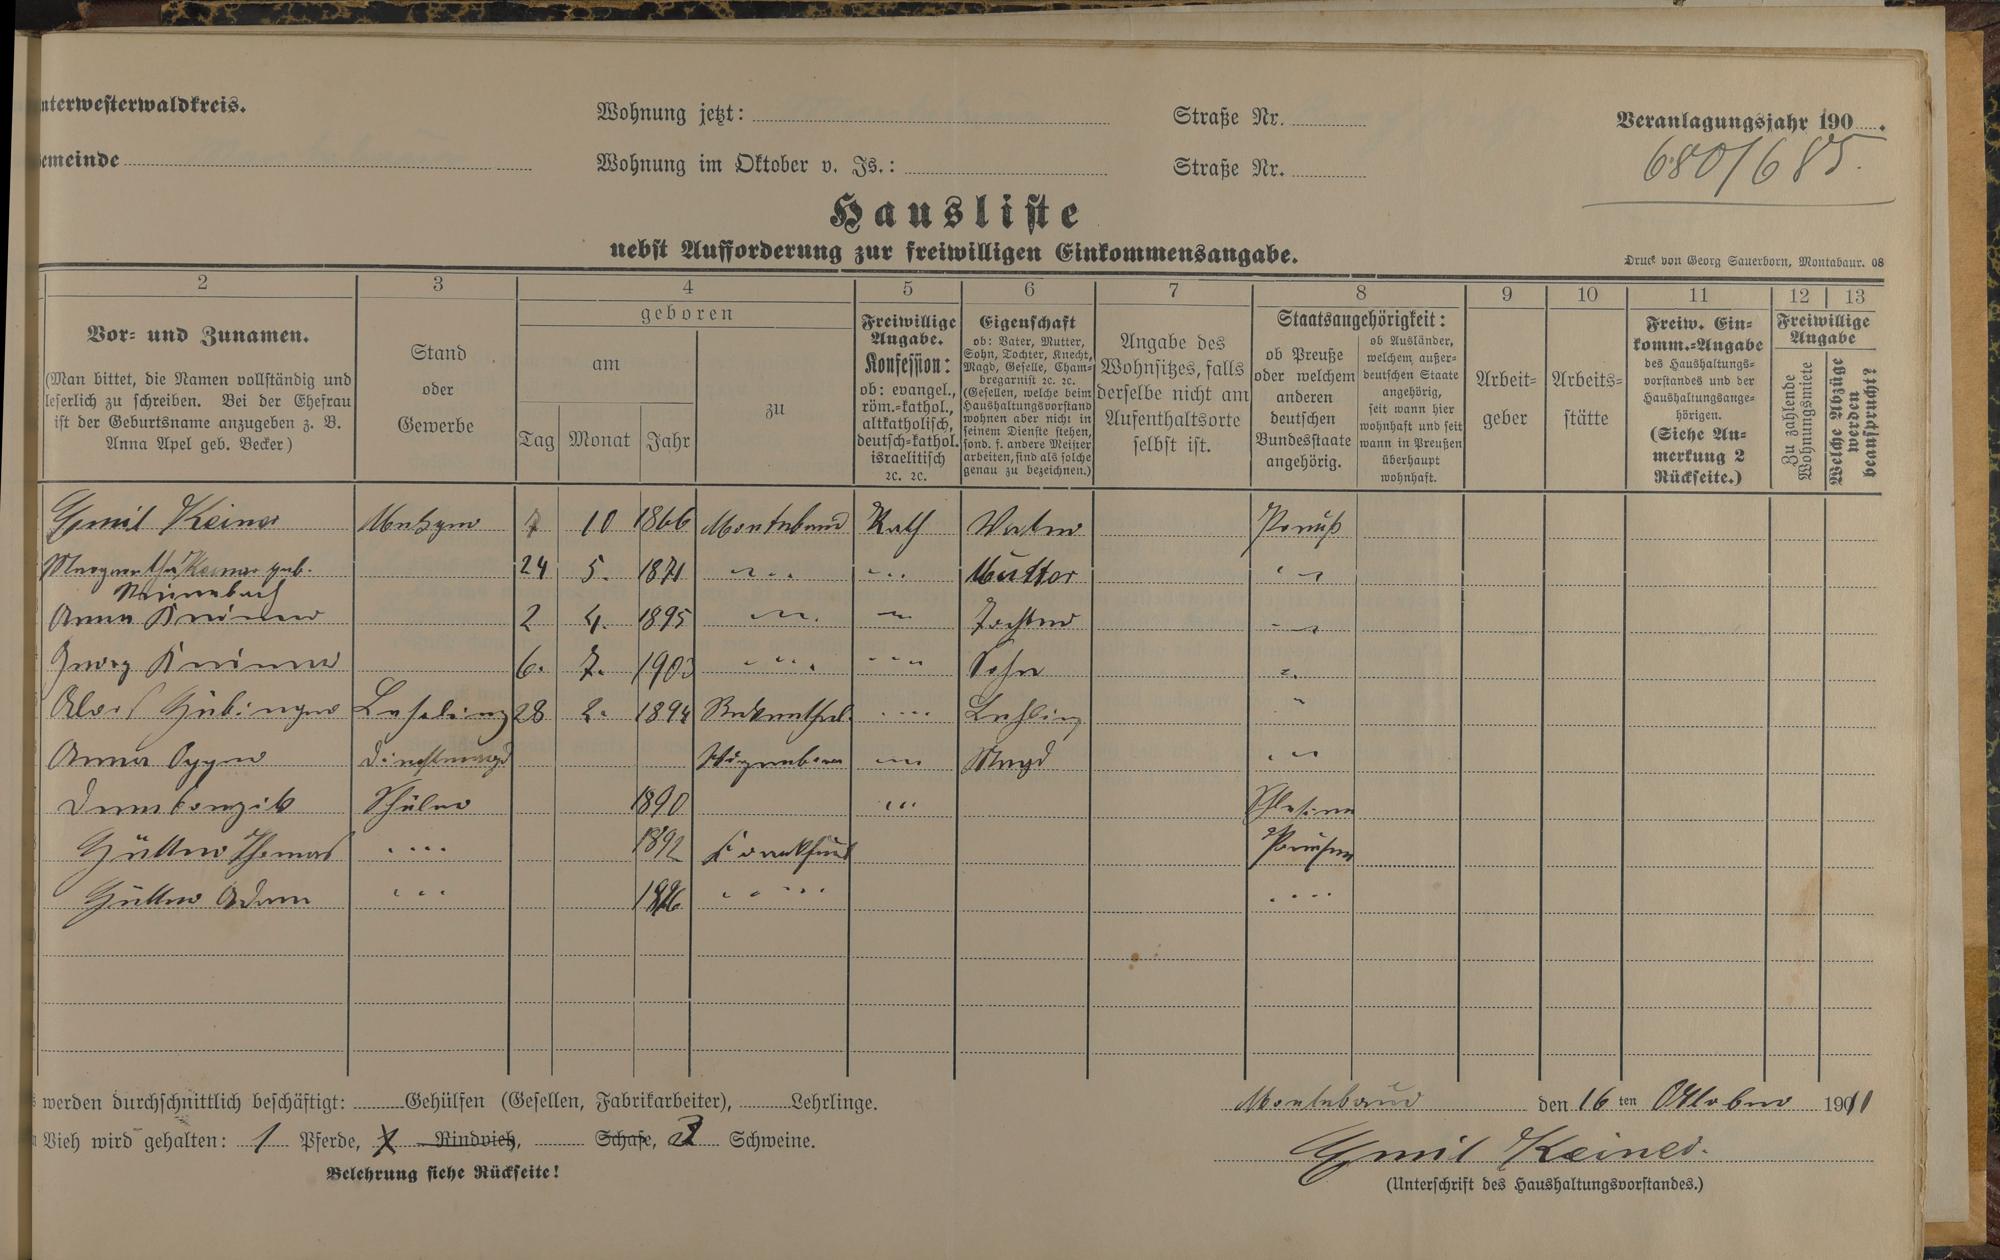 nterwesterwaldkreis.
emeinde
Wohnung jetzt:
Straße Nr.
Wohnung im Oktober v. Js.:
Straße Nr.
Veranlagungsjahr 190 .
680/685.
Hausliste
nebst Aufforderung zur freiwilligen Einkommensangabe.
Druck von Georg Sauerborn, Montabaur. 08
2 3 4 5 6 7 8 9 10 11 12 13
Vor- und Zunamen.
(Man bittet, die Namen vollständig und
leserlich zu schreiben. Bei der Ehefrau
ist der Geburtsname anzugeben z. B.
Anna Apel geb. Becker)
Stand
oder
Gewerbe
geboren
am
Tag Monat Jahr
zu
Freiwillige
Angabe.
Konfession:
ob: evangel.,
röm.-kathol.,
altkatholisch,
deutsch-kathol.
israelitisch
2c. 2c.
Eigenschaft
ob: Vater, Mutter,
Sohn, Tochter, Knecht,
Magd, Geselle, Cham-
bregarnist 2c. 2c.
(Gesellen, welche beim
Haushaltungsvorstand
wohnen aber nicht in
seinem Dienste stehen,
sond. f. andere Meister
arbeiten, sind als solche
genau zu bezeichnen.)
Angabe des
Wohnsitzes, falls
derselbe nicht am
Aufenthaltsorte
selbst ist.
Staatsangehörigkeit:
ob Preuße
oder welchem
anderen
deutschen
Bundesstaate
angehörig.
ob Ausländer,
welchem außer-
deutschen Staate
angehörig,
seit wann hier
wohnhaft und seit
wann in Preußen
überhaupt
wohnhaft.
Arbeit-
geber
Arbeits-
stätte
Freiw. Ein-
komm.-Angabe
des Haushaltungs-
vorstandes und der
Haushaltungsange-
hörigen.
(Siehe An-
merkung 2
Rückseite.)
Freiwillige
Angabe
Zu zahlende
Wohnungsmiete
Welche Abzüge
werden
beansprucht?
Emil Keiner Metzger 7 10 1866 Montabaur Kath Vater Preuß
Margaretha Keiner geb. 24 5. 1871 " " Mutter "
Anna Keiner 2 4. 1895 " " Tochter "
Georg Keiner 6. 7. 1903 " " Sohn "
Alois Gübinger Lehrling 28 2. 1894 " Lehling "
Anna Dienstmagd " Magd "
Schüler 1890 "
Güller Thomas " 1892 Frankfurt Preußen
Güller Adam " "
"
s werden durchschnittlich beschäftigt: Gehülfen (Gesellen, Fabrikarbeiter), Lehrlinge.
Vieh wird gehalten: 1 Pferde, Rindvieh, Schafe, 3 Schweine.
Belehrung siehe Rückseite!
Montabaur den 16 ten Oktober 1911
Emil Keiner.
(Unterschrift des Haushaltungsvorstandes.)